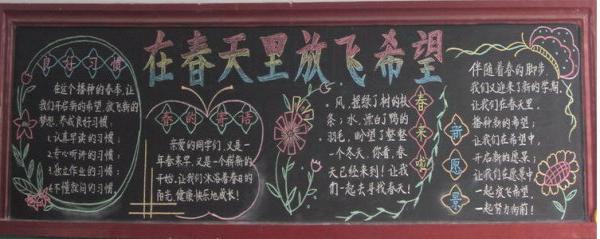 在春天里放飞希望
良好习惯
在这个播种的春季,让
我们开启新的希望,放飞新的
梦想,养成良好习惯:
1.认真早读的习惯;
2.专心听讲的习惯;
3.独立作业的习惯;
4.不懂就问的习惯。
春的寄语
亲爱的同学们,又是一
年春来早,又是一个崭新的
开始,让我们沐浴着春日的
阳光,健康快乐地成长!
春来啦
风,茸绿了树的枝
条;水,漂白了鸭的
羽毛,盼望了整整
一个冬天,你看,春
天已经来到!让我
们一起去寻找春天!
新愿景
伴随着春的脚步,
我们又迎来了新的学期,
让我们在春天里,
播种新的希望;
让我们在希望中,
开启新的愿景;
让我们在愿景中
一起放飞希望,
一起努力向前!